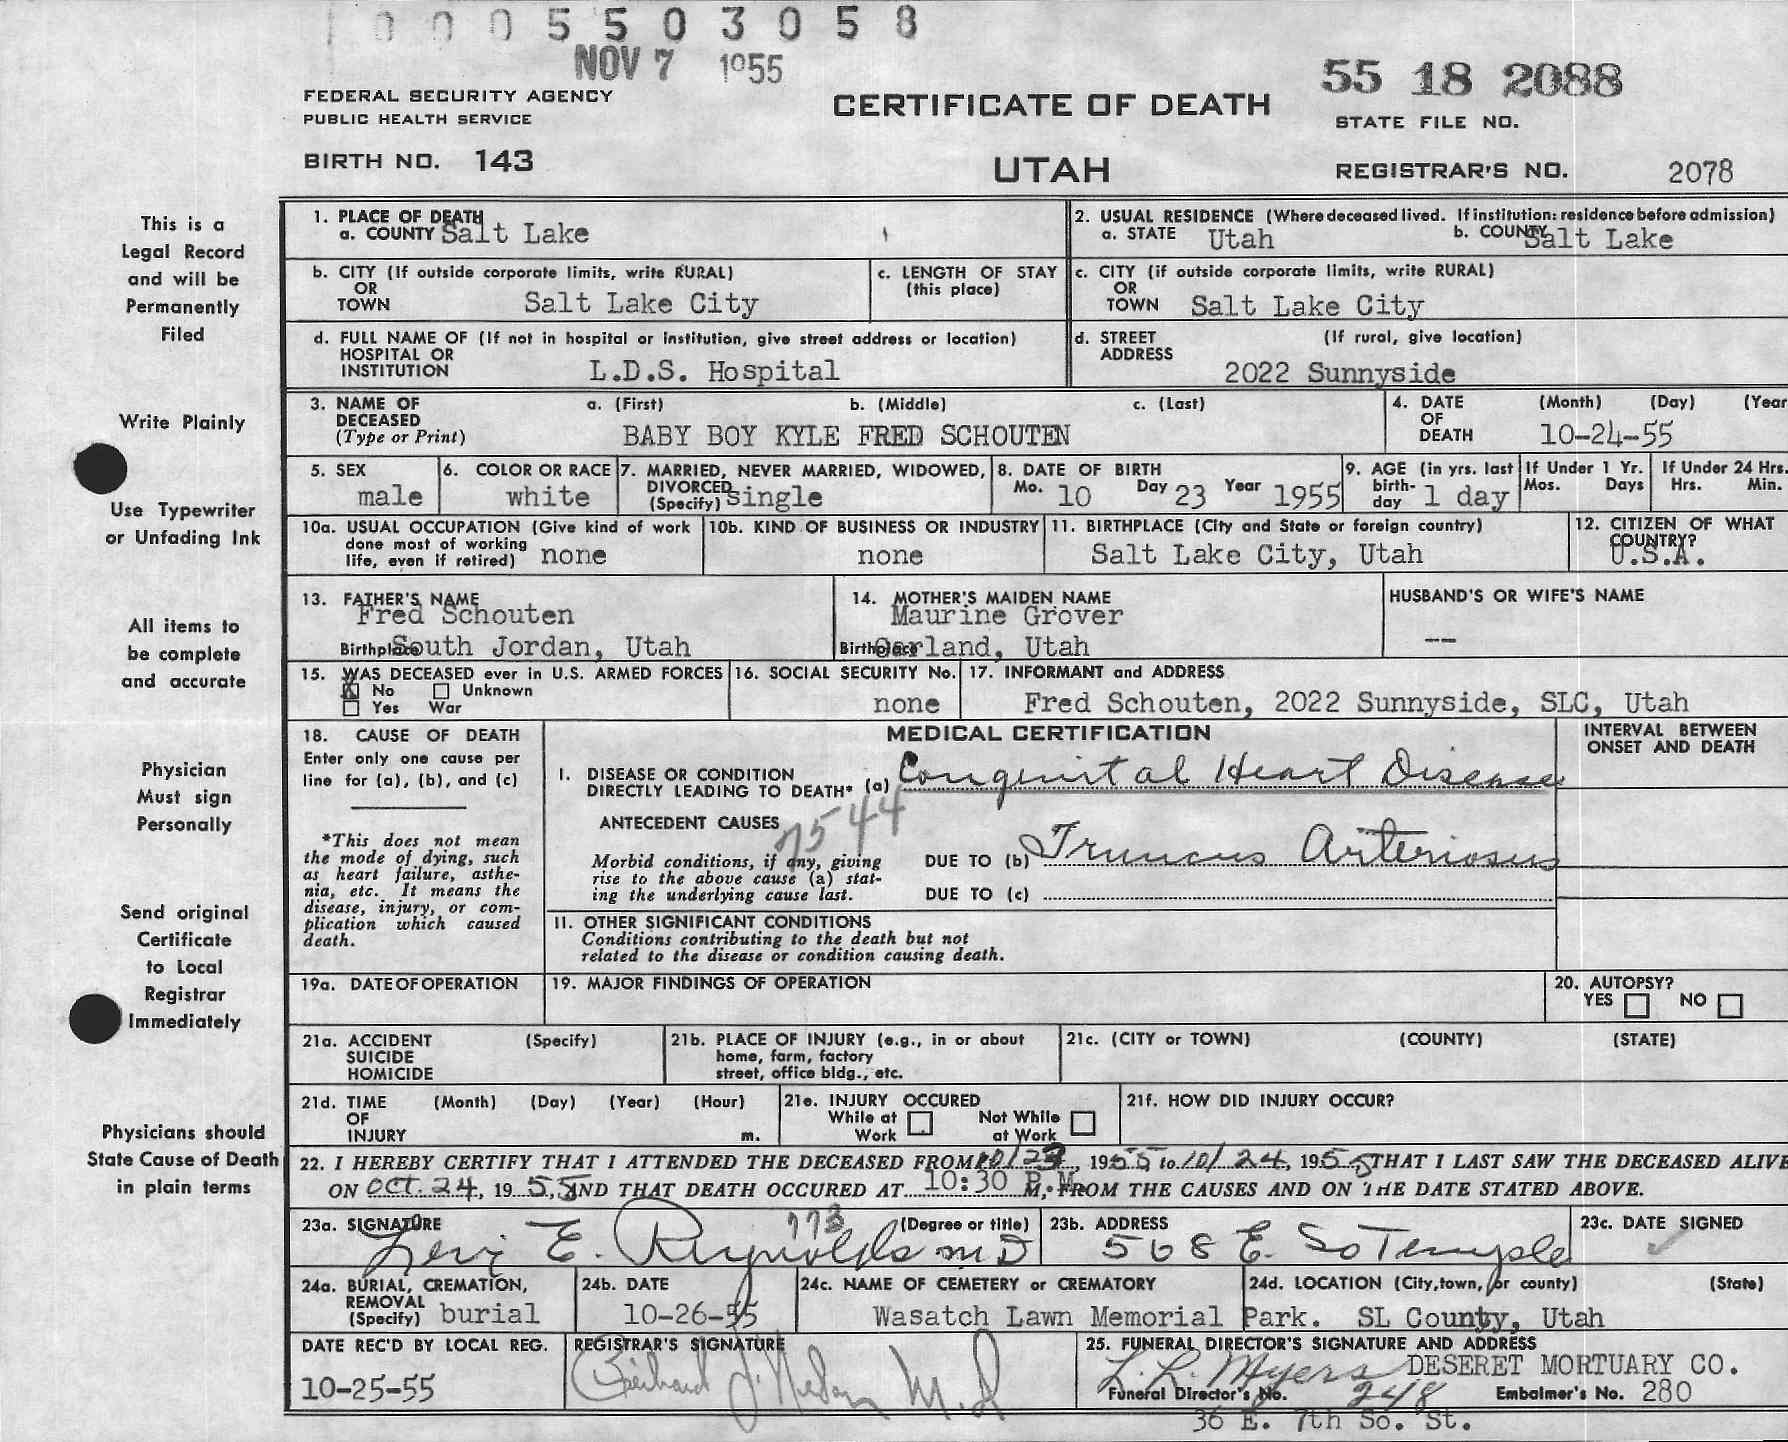 1 0 0 0 5 5 0 3 0 5 8
NOV 7 1955
55 18 2088
FEDERAL SECURITY AGENCY
PUBLIC HEALTH SERVICE
CERTIFICATE OF DEATH
STATE FILE NO.
BIRTH NO. 143
UTAH
REGISTRAR'S NO. 2078
This is a
Legal Record
and will be
Permanently
Filed
Write Plainly
Use Typewriter
or Unfading Ink
All items to
be complete
and accurate
Physician
Must sign
Personally
Send original
Certificate
to Local
Registrar
Immediately
Physicians should
State Cause of Death
in plain terms
1. PLACE OF DEATH
a. COUNTY Salt Lake
2. USUAL RESIDENCE (Where deceased lived. If institution: residence before admission)
a. STATE Utah b. COUNTY Salt Lake
b. CITY (If outside corporate limits, write RURAL)
OR
TOWN Salt Lake City
c. LENGTH OF STAY
(this place)
c. CITY (if outside corporate limits, write RURAL)
OR
TOWN Salt Lake City
d. FULL NAME OF (If not in hospital or institution, give street address or location)
HOSPITAL OR
INSTITUTION L.D.S. Hospital
d. STREET (If rural, give location)
ADDRESS
2022 Sunnyside
3. NAME OF a. (First) b. (Middle) c. (Last)
DECEASED
(Type or Print) BABY BOY KYLE FRED SCHOUTEN
4. DATE (Month) (Day) (Year
OF
DEATH 10-24-55
5. SEX
male
6. COLOR OR RACE
white
7. MARRIED, NEVER MARRIED, WIDOWED,
DIVORCED
(Specify) single
8. DATE OF BIRTH
Mo. 10 Day 23 Year 1955
9. AGE (in yrs. last
birth-
day 1 day
If Under 1 Yr.
Mos. Days
If Under 24 Hrs.
Hrs. Min.
10a. USUAL OCCUPATION (Give kind of work
done most of working
life, even if retired) none
10b. KIND OF BUSINESS OR INDUSTRY
none
11. BIRTHPLACE (City and State or foreign country)
Salt Lake City, Utah
12. CITIZEN OF WHAT
COUNTRY?
U.S.A.
13. FATHER'S NAME
Fred Schouten
Birthplace South Jordan, Utah
14. MOTHER'S MAIDEN NAME
Maurine Grover
Birthplace Garland, Utah
HUSBAND'S OR WIFE'S NAME
--
15. WAS DECEASED ever in U.S. ARMED FORCES
X No Unknown
Yes War
16. SOCIAL SECURITY No.
none
17. INFORMANT and ADDRESS
Fred Schouten, 2022 Sunnyside, SLC, Utah
18. CAUSE OF DEATH
Enter only one cause per
line for (a), (b), and (c)
*This does not mean
the mode of dying, such
as heart failure, asthe-
nia, etc. It means the
disease, injury, or com-
plication which caused
death.
MEDICAL CERTIFICATION
INTERVAL BETWEEN
ONSET AND DEATH
I. DISEASE OR CONDITION
DIRECTLY LEADING TO DEATH* (a) Congenital Heart Disease
ANTECEDENT CAUSES
7544
Morbid conditions, if any, giving
rise to the above cause (a) stat-
ing the underlying cause last.
DUE TO (b) Truncus Arteriosus
DUE TO (c)
II. OTHER SIGNIFICANT CONDITIONS
Conditions contributing to the death but not
related to the disease or condition causing death.
19a. DATE OF OPERATION
19. MAJOR FINDINGS OF OPERATION
20. AUTOPSY?
YES NO
21a. ACCIDENT (Specify)
SUICIDE
HOMICIDE
21b. PLACE OF INJURY (e.g., in or about
home, farm, factory
street, office bldg., etc.
21c. (CITY or TOWN) (COUNTY) (STATE)
21d. TIME (Month) (Day) (Year) (Hour)
OF
INJURY m.
21e. INJURY OCCURED
While at Not While
Work at Work
21f. HOW DID INJURY OCCUR?
22. I HEREBY CERTIFY THAT I ATTENDED THE DECEASED FROM 10/23, 1955 to 10/24, 1955 THAT I LAST SAW THE DECEASED ALIVE
ON OCT. 24, 1955, AND THAT DEATH OCCURED AT 10:30 P.M. M, FROM THE CAUSES AND ON THE DATE STATED ABOVE.
23a. SIGNATURE 773 (Degree or title)
Levi E. Reynolds MD
23b. ADDRESS
508 E. So Temple
23c. DATE SIGNED
24a. BURIAL, CREMATION,
REMOVAL
(Specify) burial
24b. DATE
10-26-55
24c. NAME OF CEMETERY or CREMATORY
Wasatch Lawn Memorial Park.
24d. LOCATION (City, town, or county) (State)
SL County, Utah
DATE REC'D BY LOCAL REG.
10-25-55
REGISTRAR'S SIGNATURE
M.D
25. FUNERAL DIRECTOR'S SIGNATURE AND ADDRESS
L. R. Myers DESERET MORTUARY CO.
Funeral Director's No. 248 Embalmer's No. 280
36 E. 7th So. St.